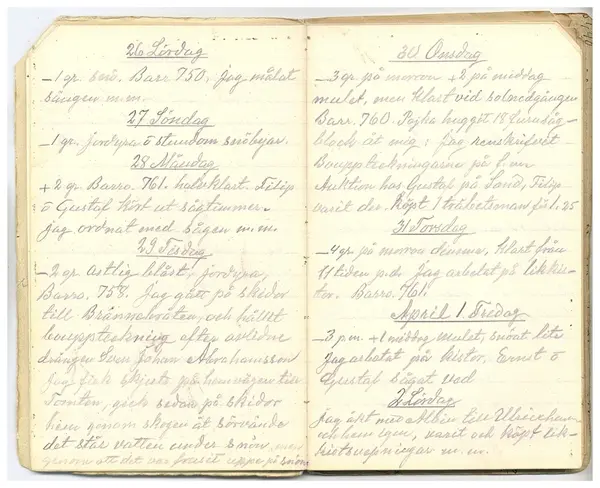 26 Lördag
-1 gr. snö. Barr 750, jag målat
sängen m.m.
27 Söndag
-1 gr. jordyra o stundom snöbyar.
28 Måndag
+2 gr. Barro. 761. halvklart. Filip
o Gustaf kört ut sågtimmer.
jag ordnat med sågen m.m.
29 Tisdag
-2 gr. ostlig blåst, jordyra,
Barro. 758. Jag gått på skidor
till och hållit
bouppteckning efter avlidne
drängen Sven Johan Abrahamsson
Jag fick skjuts på hemvägen till
Tomten, gick sedan på skidor
hem genom skogen åt
det står vatten under snön, men
genom att det var frusit uppe på snön
30 Onsdag
-3 gr på morron +2 på middag
mulet, men klart vid solnedgången
Barr. 760. Pojka huggit 18
block åt mig; Jag renskrifvit
Bouppteckningarne på
Auktion hos Gustaf på Sand, Filip
varit der. köpt 1 för 1.25
31 Torsdag
-4 gr. på morron dimma, klart från
11 tiden p.d. jag arbetat på likkis-
tor. Barro. 761.
April 1. Fredag
-3 p.m. +1 middag mulet, snöat lite
Jag arbetat på kistor, Ernst o
Gustaf sågat ved
2 Lördag
Jag åkt med Albin till Ulricehamn
och hem igen, varit och köpt lik-
kistsvepningar m.m.